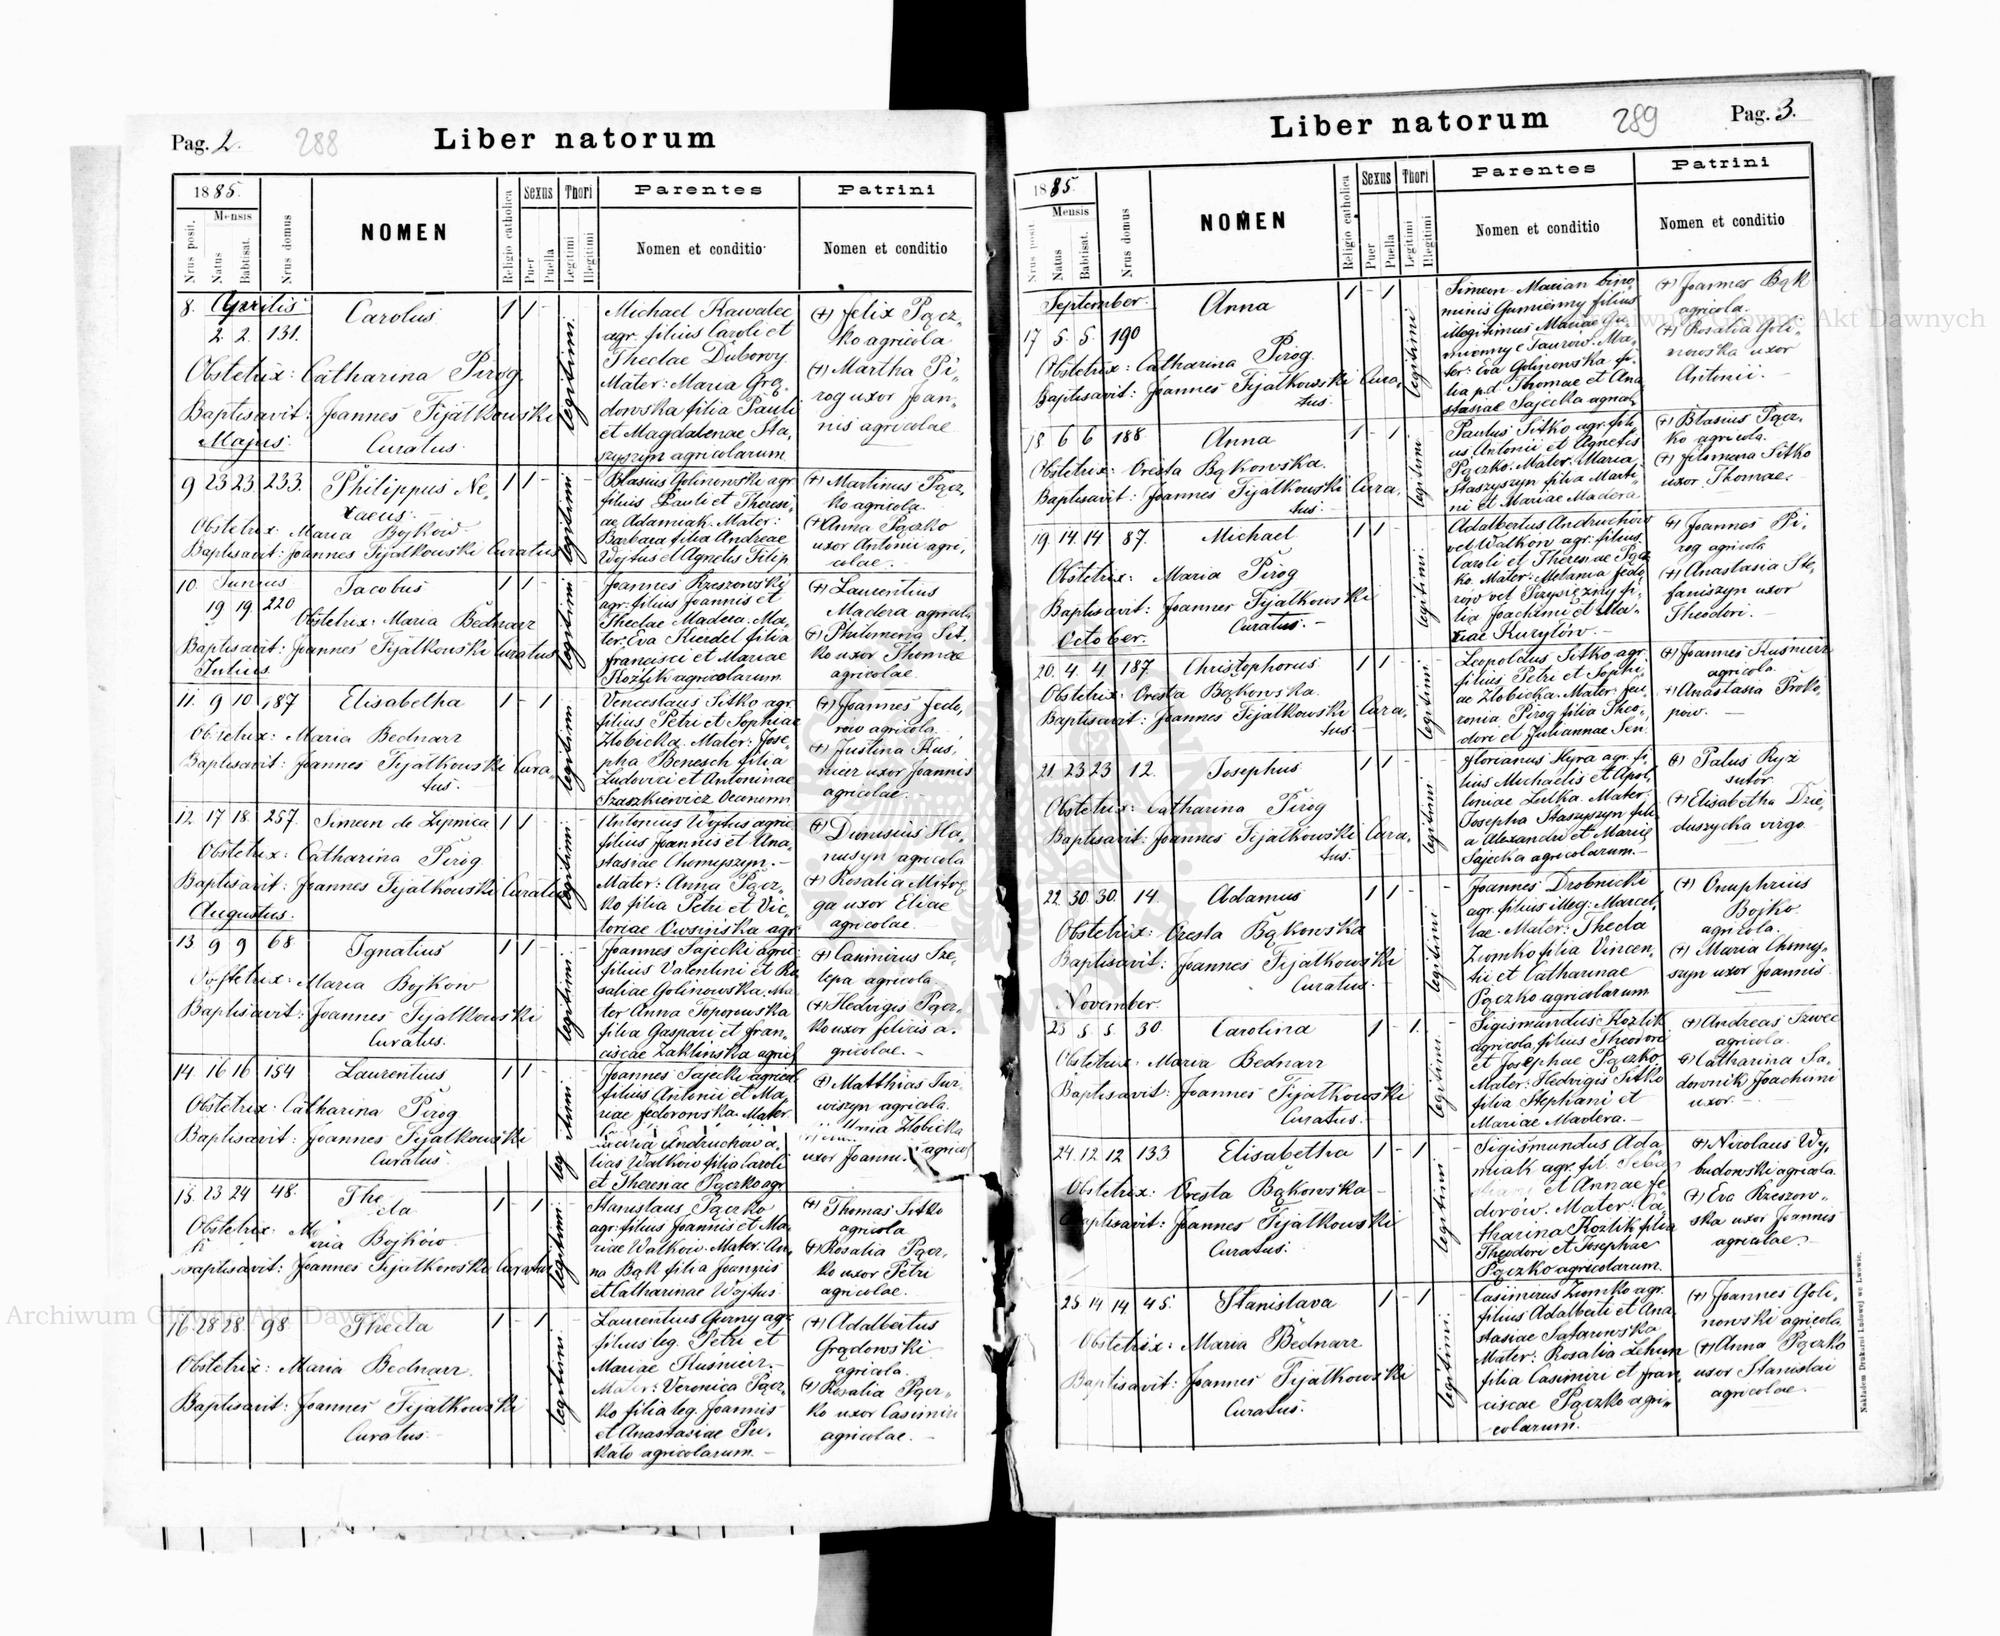 Pag. 2.
288
Liber natorum
1885.
Mensis
Nrus posit.
Natus
Babtisat.
Nrus domus
NOMEN
Religio catholica
Sexus
Puer
Puella
Thori
Legitimi
Illegitimi
Parentes
Nomen et conditio
Patrini
Nomen et conditio
8. Aprilis
2. 2. 131.
Carolus
1 1 -
legitimi
Obstetrix: Catharina Pirog.
Baptisavit: Joannes Fijałkowski
Curatus.
Michael Kawalec
agr. filius Caroli et
Theclae Dubowy.
Mater: Maria Grą-
dowska filia Pauli
et Magdalenae Sta-
szyszyn agricolarum
(+) Felix Pącz-
ko agricola
(+) Martha Pi-
rog uxor Joan-
nis agricolae
Majus.
9 23 23. 233.
Philippus Ne-
raeus.
1 1 -
legitimi
Obstetrix: Maria Bojków
Baptisavit: Joannes Fijałkowski Curatus
Blasius Golinowski agr.
filius Pauli et Theresi-
ae Adamiak. Mater:
Barbara filia Andreae
Wojtus et Agnetis Filip
(+) Martinus Pącz-
ko agricola.
(+) Anna Pączko
uxor Antonii agri-
colae.
10. Junius
19 19 220
Jacobus
1 1 -
legitimi
Obstetrix: Maria Bednarz
Baptisavit: Joannes Fijałkowski Curatus
Joannes Rzeszowski
agr. filius Joannis et
Theclae Madera. Ma-
ter: Eva Kierdel filia
Francisci et Mariae
Kozlik agricolarum
(+) Laurentius
Madera agricola
(+) Philomena Sit-
ko uxor Thomae
agricolae.
Julius.
11. 9 10 187
Elisabetha
1 - 1
legitimi
Obstetrix: Maria Bednarz
Baptisavit: Joannes Fijałkowski Cura-
tus.
Venceslaus Sitko agr.
filius Petri et Sophiae
Złobicka. Mater: Jose-
pha Benesch filia
Ludovici et Antoninae
Szaszkiewicz Oeconom.
(+) Joannes Fedo-
rów agricola
(+) Justina Kus-
nierz uxor Joannis
agricolae.
12. 17 18. 257.
Simeon de Lipnica
1 1
legitimi
Obstetrix: Catharina Pirog
Baptisavit: Joannes Fijałkowski Curatus
Antonius Wojtus agric
filius Joannis et Ana-
stasiae Chomyszyn.
Mater: Anna Pącz-
ko filia Petri et Vic-
toriae Owsinska agr.
(+) Dionisius Ha-
nusyn agricola
(+) Rosalia Mitrę-
ga uxor Eliae
agricolae.
Augustus.
13 9 9 68.
Ignatius
1 1 -
legitimi
Obstetrix: Maria Bojkow
Baptisavit: Joannes Fijałkowski
Curatus.
Joannes Sajecki agric.
filius Valentini et Ro
saliae Golinowska. Ma-
ter Anna Toporowska
filia Gaspari et Fran-
ciscae Zaklinska agric
(+) Casimirus Sze-
lepa agricola.
(+) Hedvigis Pącz-
ko uxor Felicis a-
gricolae.
14. 16 16 154
Laurentius
1 1 -
Obstetrix: Catharina Pirog
Baptisavit: Joannes Fijałkowski
Curatus.
Joannes Sajecki agricol
filius Antonii et Ma-
riae Fedorowska. Mater
Andruchów a-
lias Walków filia Caroli
et Theresae Pączko agr.
(+) Matthias Tur-
wiszyn agricola.
Złobicka
uxor Joanni. agricol
15. 23 24 48.
Thecla
1 - 1
legitimi
Obstetrix: Maria Bojków
Baptisavit: Joannes Fijałkowski Curatus
Stanislaus Pączko
agr. filius Joannis et Ma-
riae Walków. Mater: An-
na Bąk filia Joannis
et Catharinae Wojtus
(+) Thomas Sitko
agricola
(+) Rosalia Pącz-
ko uxor Petri
agricolae.
16. 28 28. 98.
Thecla
1 - 1
legitimi
Obstetrix: Maria Bednarz.
Baptisavit: Joannes Fijałkowski
Curatus.
Laurentius Gurny agr
filius leg. Petri et
Mariae Kusnierz.
Mater: Veronica Pącz-
ko filia leg. Joannis
et Anastasiae Pu-
kało agricolarum.
(+) Adalbertus
Grądowski
agricola.
(+) Rosalia Pącz-
ko uxor Casimiri
agricolae.
Liber natorum
289
Pag. 3.
1885.
Mensis
Nrus posit.
Natus
Babtisat.
Nrus domus
NOMEN
Religio catholica
Sexus
Puer
Puella
Thori
Legitimi
Illegitimi
Parentes
Nomen et conditio
Patrini
Nomen et conditio
September.
17 5. 5. 190
Anna
1 - 1
legitimi
Obstetrix: Catharina Pirog.
Baptisavit: Joannes Fijałkowski Cura-
tus.
Simeon Marian bino-
minis Gumienny filius
illegitimus Mariae Gu-
mienny e Taurów. Ma-
ter: Eva Golinowska fi-
lia p.d. Thomae et Ana
stasiae Sajecka agricol.
(+) Joannes Bąk
agricola.
(+) Rosalia Goli-
nowska uxor
Antonii.
18 6 6 188.
Anna
1 - 1
legitimi
Obstetrix: Oresta Bąkowska.
Baptisavit: Joannes Fijałkowski Cura-
tus.
Paulus Sitko agr. fili-
us Antonii et Agnetis
Pączko. Mater: Maria
Staszyszyn filia Marti-
ni et Mariae Madera
(+) Blasius Pącz-
ko agricola.
(+) Filomena Sitko
uxor Thomae.
19 14. 14 87.
Michael
1 1 -
legitimi
Obstetrix: Maria Pirog
Baptisavit: Joannes Fijałkowski
Curatus.
Adalbertus Andruchów
vel Walków agr. filius
Caroli et Theresae Pącz
ko. Mater: Melania Fedo-
rów vel Przysiężny fi-
lia Joachimi et Ma-
riae Kuryłów.
(+) Joannes Pi-
rog agricola
(+) Anastasia Ste-
faniszyn uxor
Theodori.
October.
20. 4. 4 187.
Christophorus
1 1 -
legitimi
Obstetrix: Oresta Bąkowska.
Baptisavit: Joannes Fijałkowski Cura-
tus.
Leopoldus Sitko agr.
filius Petri et Sophi-
ae Złobicka. Mater: Feu-
ronia Pirog filia Theo-
dori et Juliannae Sen.
(+) Joannes Kusnierz
agricola.
(+) Anastasia Proko-
pow.
21. 23 23 12.
Josephus
1 1 -
legitimi
Obstetrix: Catharina Pirog
Baptisavit: Joannes Fijałkowski Cura-
tus.
Florianus Hyra agr. fi-
lius Michaelis et Apol-
loniae Lulka. Mater:
Josepha Staszyszyn fili-
a Alexandri et Mariae
Sajecka agricolarum.
(+) Palus Ryz
sutor.
(+) Elisabetha Dzie-
duszycka virgo.
22. 30. 30. 14.
Adamus
1 1 -
legitimi
Obstetrix: Oresta Bąkowska
Baptisavit: Joannes Fijałkowski
Curatus.
Joannes Drobnicki
agr. filius illeg: Marcel-
lae. Mater: Thecla
Ziomko filia Vincen-
tii et Catharinae
Pączko agricolarum
(+) Onuphrius
Bojko.
agricola.
(+) Maria Chomy-
szyn uxor Joannis.
November.
23 8. 8. 30.
Carolina
1 - 1.
legitimi
Obstetrix: Maria Bednarz
Baptisavit: Joannes Fijałkowski
Curatus.
Sigismundus Kozlik
agricola, filius Theodori
et Josephae Pączko.
Mater: Hedvigis Sitko
filia Stephani et
Mariae Madera.
(+) Andreas Szwec
agricola.
(+) Catharina Sa-
downik Joachimi
uxor.
24. 12. 12 133
Elisabetha
1 - 1
legitimi
Obstetrix: Oresta Bąkowska
Baptisavit: Joannes Fijałkowski
Curatus.
Sigismundus Ada-
miak agr. fil. Seba-
stiani et Annae Fe
dorów. Mater: Ca-
tharina Kozlik filia
Theodori et Josephae
Pączko agricolarum.
(+) Nicolaus Wy-
budowski agricola.
(+) Eva Rzeszow-
ska uxor Joannis
agricolae.
25. 14 14. 45.
Stanislava
1 - 1
legitimi.
Obstetrix: Maria Bednarz
Baptisavit: Joannes Fijałkowski
Curatus.
Casimirus Ziomko agr.
filius Adalberti et Ana-
stasiae Satarowska
Mater: Rosalia Lchun
filia Casimiri et Fran-
ciscae Pączko agri-
colarum.
(+) Joannes Goli-
nowski agricola.
(+) Anna Pączko
uxor Stanislai
agricolae.
Nakładem Drukarni Ludowej we Lwowie.
Archiwum Główne Akt Dawnych
Archiwum Główne Akt Dawnych